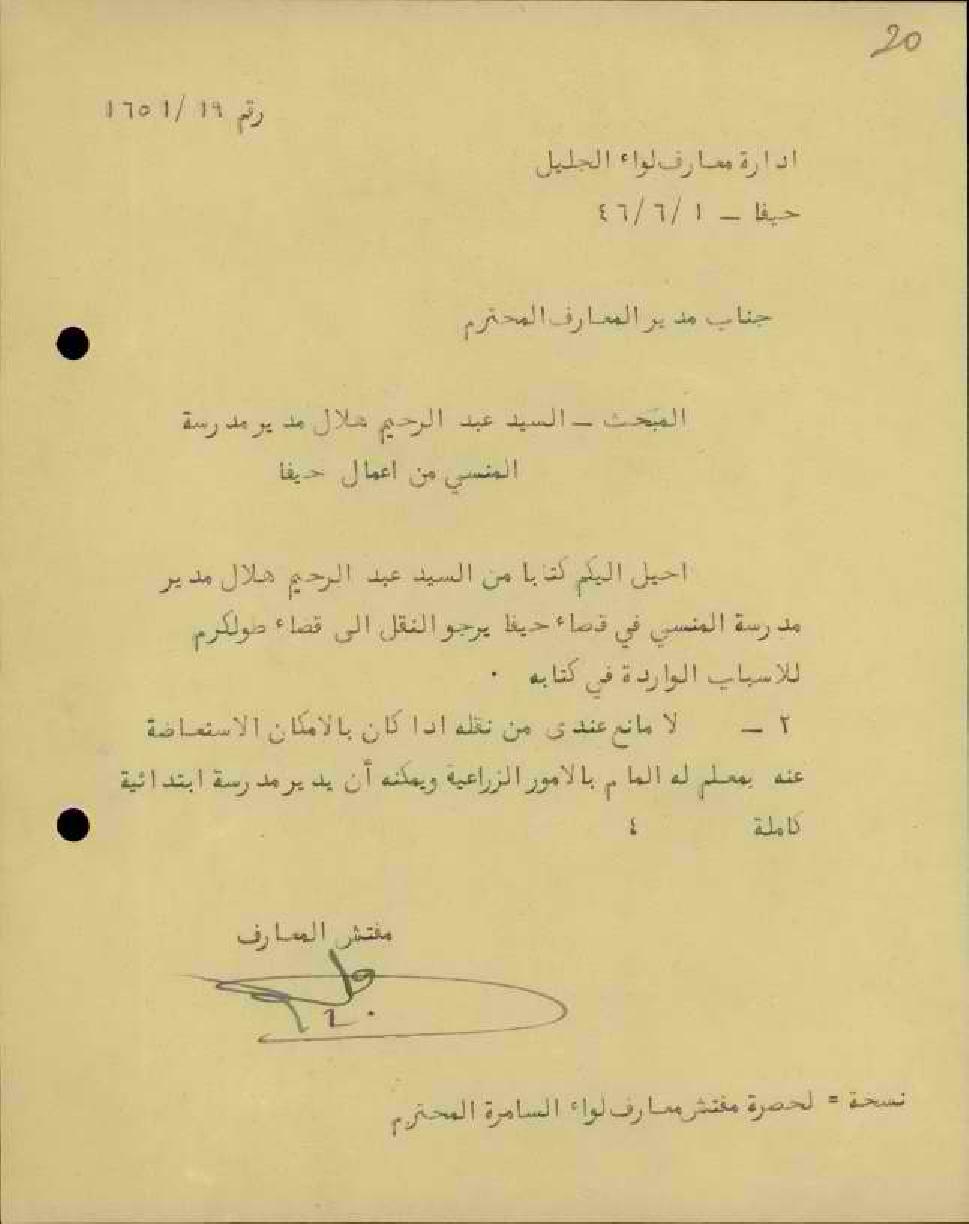 20
رقم ١٩ /١٦٥١
ادارة معارف لواء الجليل
حيفا – ١ /٦ /٤٦
جناب مدير المعارف المحترم
المبحث – السيد عبد الرحيم هلال مدير مدرسة
المنسي من اعمال حيفا
احيل اليكم كتابا من السيد عبد الرحيم هلال مدير
مدرسة المنسي في قضاء حيفا يرجو النقل الى قضاء طولكرم
للاسباب الواردة في كتابه .
٢ – لا مانع عندى من نقله اذا كان بالامكان الاستعاضة
عنه بمعلم له المام بالامور الزراعية ويمكنه أن يدير مدرسة ابتدائية
كاملة ٤
مفتش المعارف
نسخة = لحضرة مفتش معارف لواء السامرة المحترم